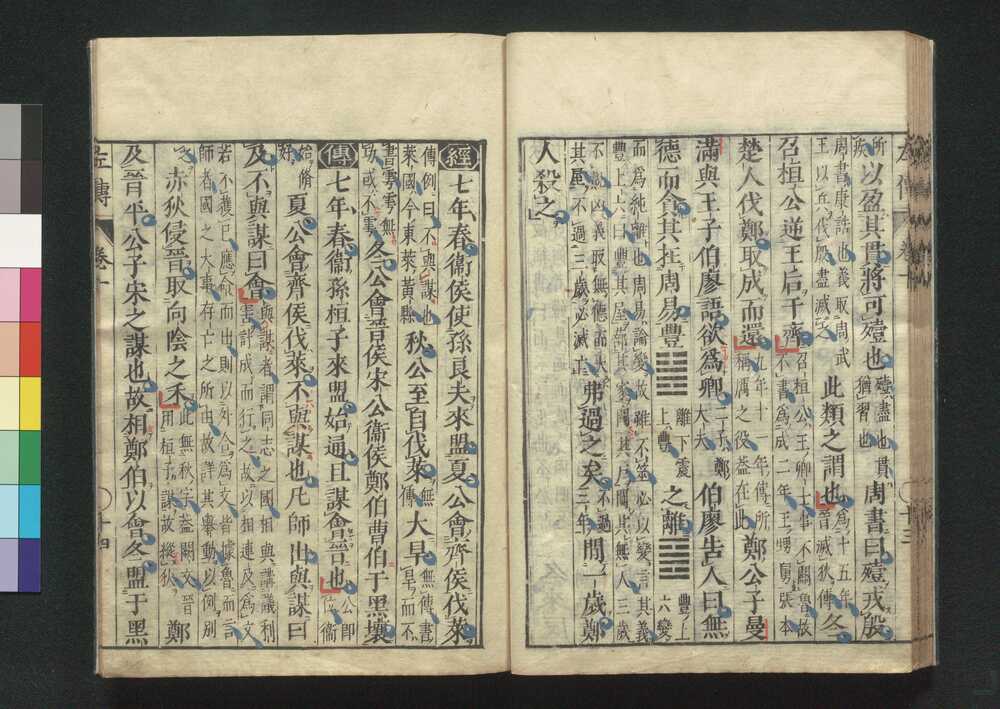 所疾以盈其貫將可殪也殪盡也貫猶習也周書曰殪戎殷
周書康誥也義取周武王以兵伐殷盡滅之此類之謂也為十五年晉滅狄傳冬
召桓公逆王后于齊召桓公王卿士事不關魯故不書為成二年王甥舅張本
楚人伐鄭取成而還九年十一年傳所稱厲之役蓋在此鄭公子曼
滿與王子伯廖語欲為卿二子鄭大夫伯廖告人曰無
德而貪其在周易豐䷶離下震上豐之離䷝豐上六變
而為純離也周易論變故雖不筮必以變言其義豐上六曰豐其屋蔀其家闚其戶闃其無人三歲
不覿凶義取無德而大其屋不過三歲必滅亡弗過之矣不過三年間一歲鄭
人殺之
經七年春衞侯使孫良夫來盟夏公會齊侯伐萊
傳例曰不與謀也萊國今東萊黃縣秋公至自伐萊無傳大旱無傳書旱而不
書雩雩無功或不雩冬公會晉侯宋公衞侯鄭伯曹伯于黑壤
傳七年春衞孫桓子來盟始通且謀會晉也公即位衞
始脩好夏公會齊侯伐萊不與謀也凡師出與謀曰
及不與謀曰會與謀者謂同志之國相與講議利害計成而行之故以相連及為文
若不獲已應命而出則以外合為文皆據魯而言師者國之大事存亡之所由故詳其舉動以例別
之赤狄侵晉取向陰之禾此無秋字蓋闕文晉用桓子謀故縱狄鄭
及晉平公子宋之謀也故相鄭伯以會冬盟于黑
左傳 卷十 十四